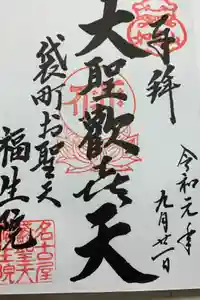 奉拝
令和元年
九月廿一日
大聖歓喜天
袋町お聖天
福生院
名古屋